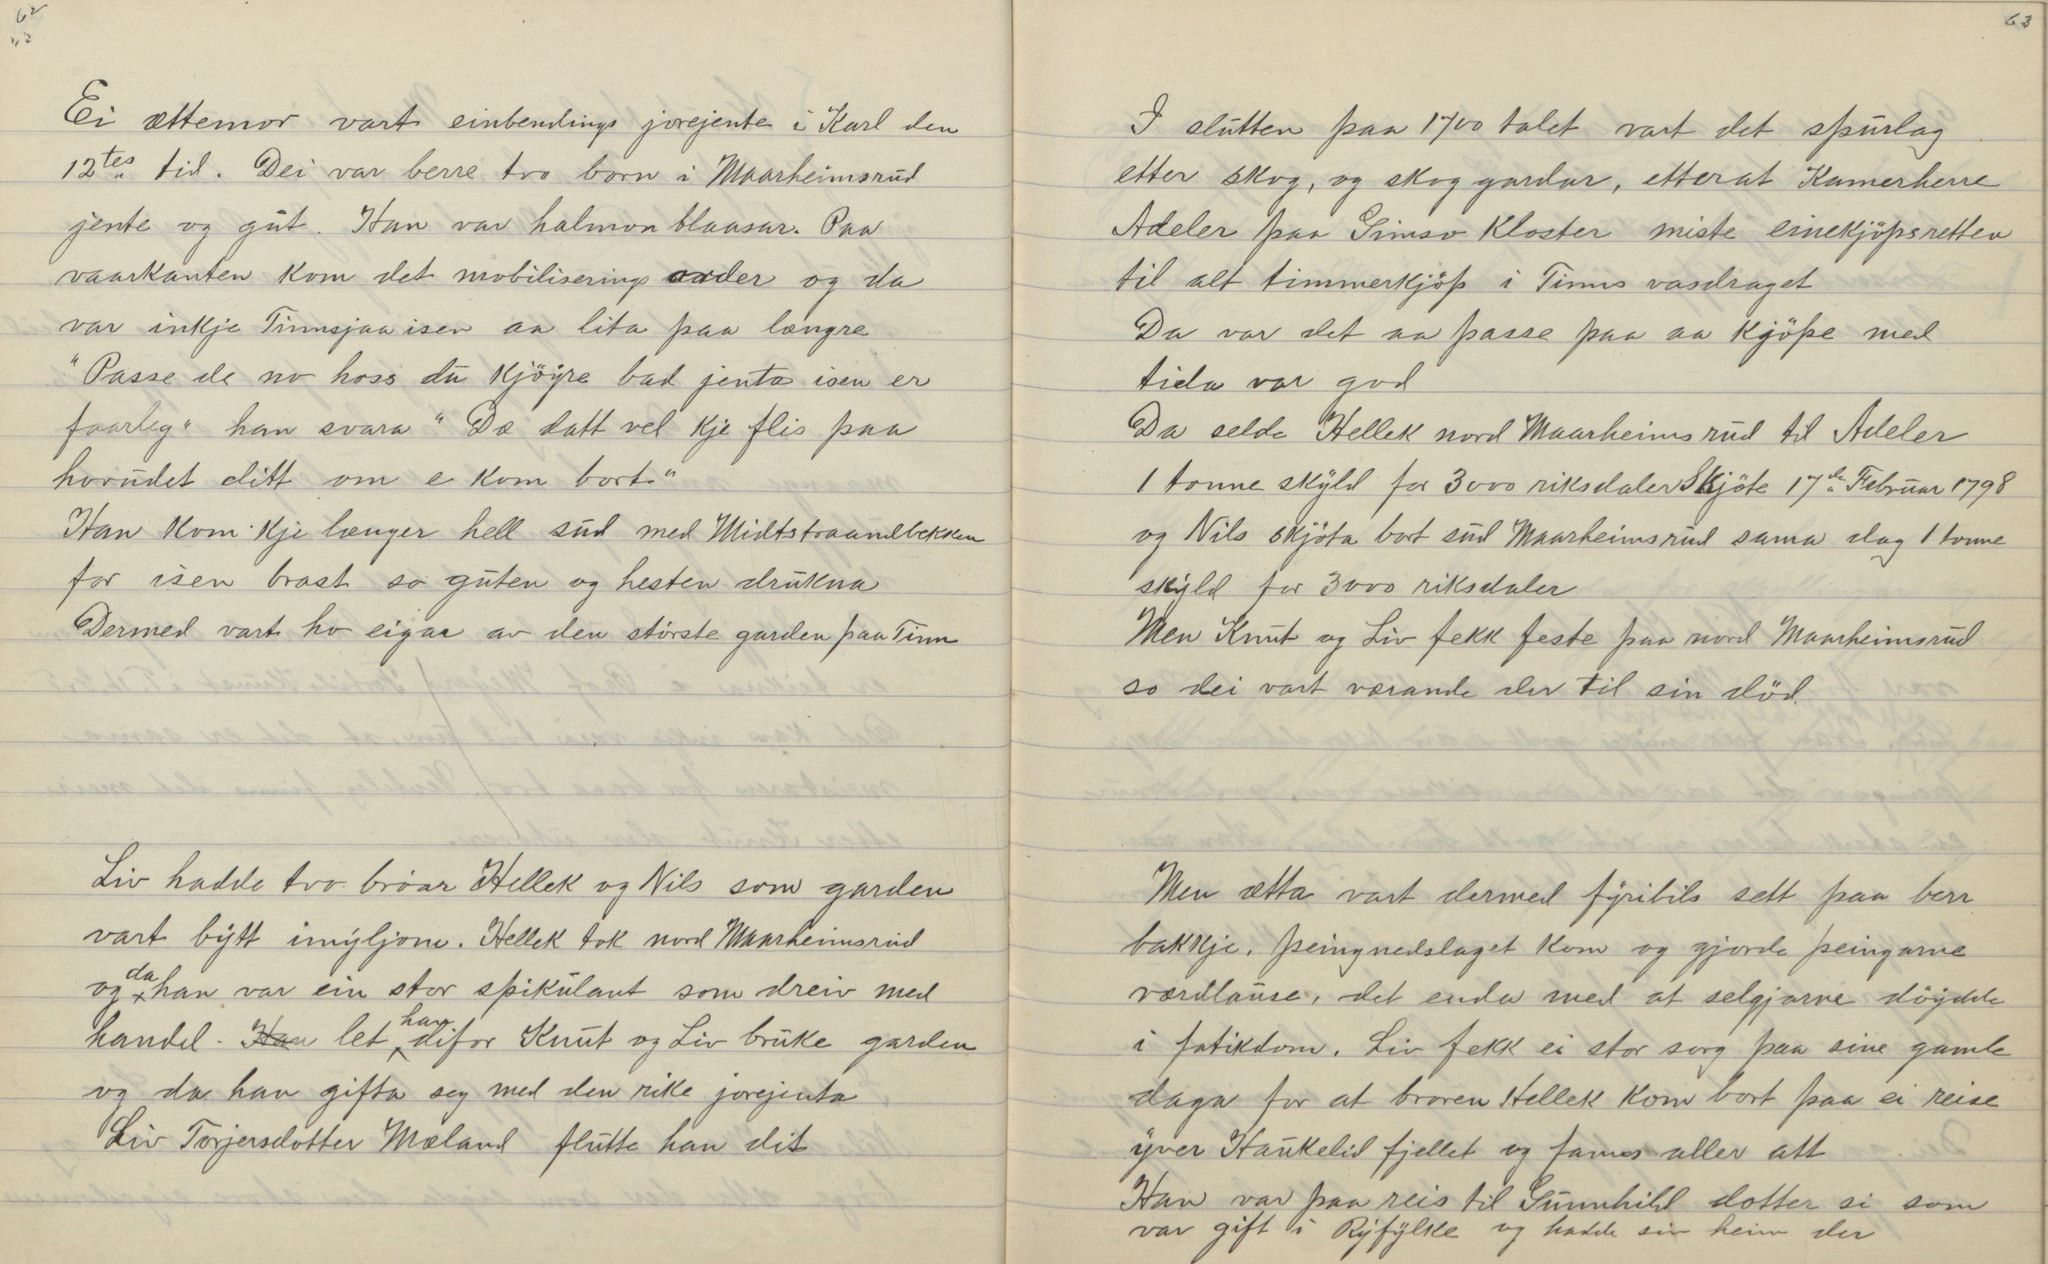 62
Ei ættemor vart einbendings jorejente i Karl den
12tes tid. Dei var berre tvo born i Maarheimsrud
jente og gut. Han var halmon blaasar. Paa
vaarkanten kom det mobiliserings order og da
var inkje Tinnsjaaisen aa lita paa længre
"Passe de no hoss du kjöyre bad jenta isen er
faarleg" han svara "Dæ datt vel kje flis paa
hovudet ditt om e kom bort"
Han kom kje længer hell sud med Midtstraandbekken
for isen brast so guten og hesten drukna
Dermed vart ho eigar av den störste garden paa Tinn
Liv hadde tvo bröar Hellek og Nils som garden
vart bytt imyljom. Hellek tok nord Maarheimsrud
og da han var ein stor spikulant som dreiv med
handel. Han let han difor Knut og Liv bruke garden
og da han gifta seg med den rike jorejenta
Liv Torjersdotter Mæland flutte han dit
63
I slutten paa 1700 talet vart det spurlag
etter skog, og skog gardar, etterat Kamerherre
Adeler paa Gimsö Kloster miste einekjöpsretten
til alt timmerkjöp i Tinns vasdraget
Da var det aa passe paa aa kjöpe med
tida var god
Da selde Hellek nord Maarheimsrud til Adeler
1 tonne skyld for 3000 riksdaler Skjöte 17de Februar 1798
og Nils skjöta bort sud Maarheimsrud sama dag 1 tonne
skyld for 3000 riksdaler
Men Knut og Liv fekk feste paa nord Maarheimsrud
so dei vart værande der til sin död.
Men ætta vart dermed fyribils sett paa berr
bakkje. peingnedslaget kom og gjorde peingarne
værdlause, det enda med at selgjarne döydde
i fatikdom. Liv fekk ei stor sorg paa sine gamle
daga for at broren Hellek kom bort paa ei reise
yver Haukelid fjellet og fanns aller att
Han var paa reis til Gunnhild dotter si som
var gift i Ryfylke og hadde sin heim der